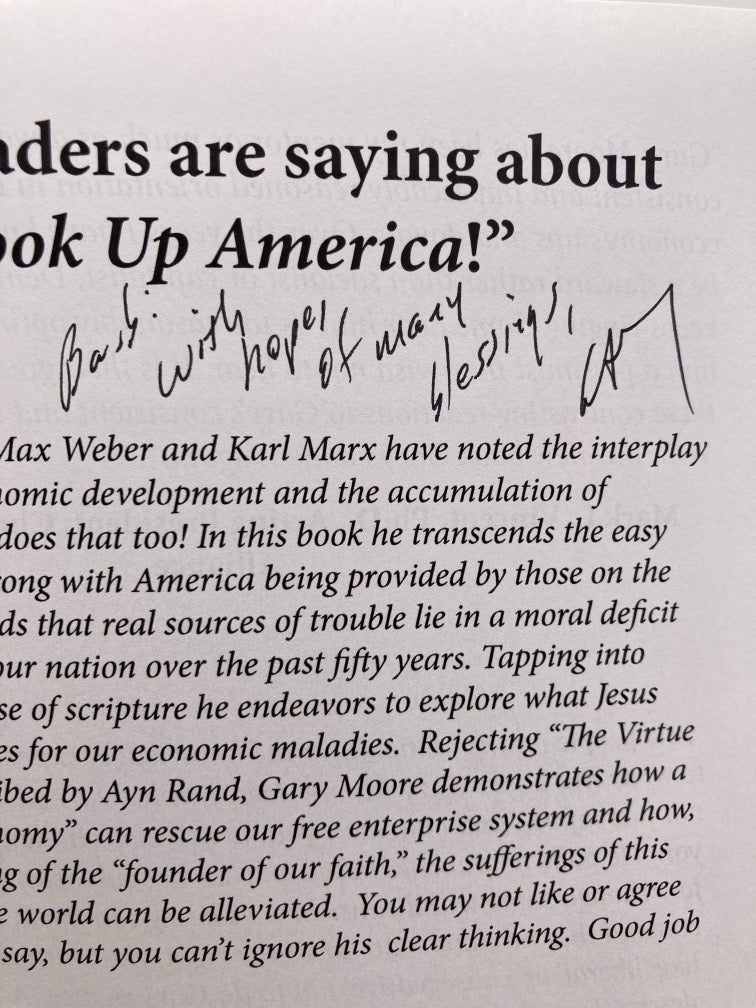 aders are saying about
ook Up America!”
with hopes of many blessings,
Max Weber and Karl Marx have noted the interplay
nomic development and the accumulation of
does that too! In this book he transcends the easy
rong with America being provided by those on the
ds that real sources of trouble lie in a moral deficit
our nation over the past fifty years. Tapping into
se of scripture he endeavors to explore what Jesus
es for our economic maladies. Rejecting “The Virtue
ibed by Ayn Rand, Gary Moore demonstrates how a
nomy” can rescue our free enterprise system and how,
g of the “founder of our faith,” the sufferings of this
e world can be alleviated. You may not like or agree
say, but you can’t ignore his clear thinking. Good job